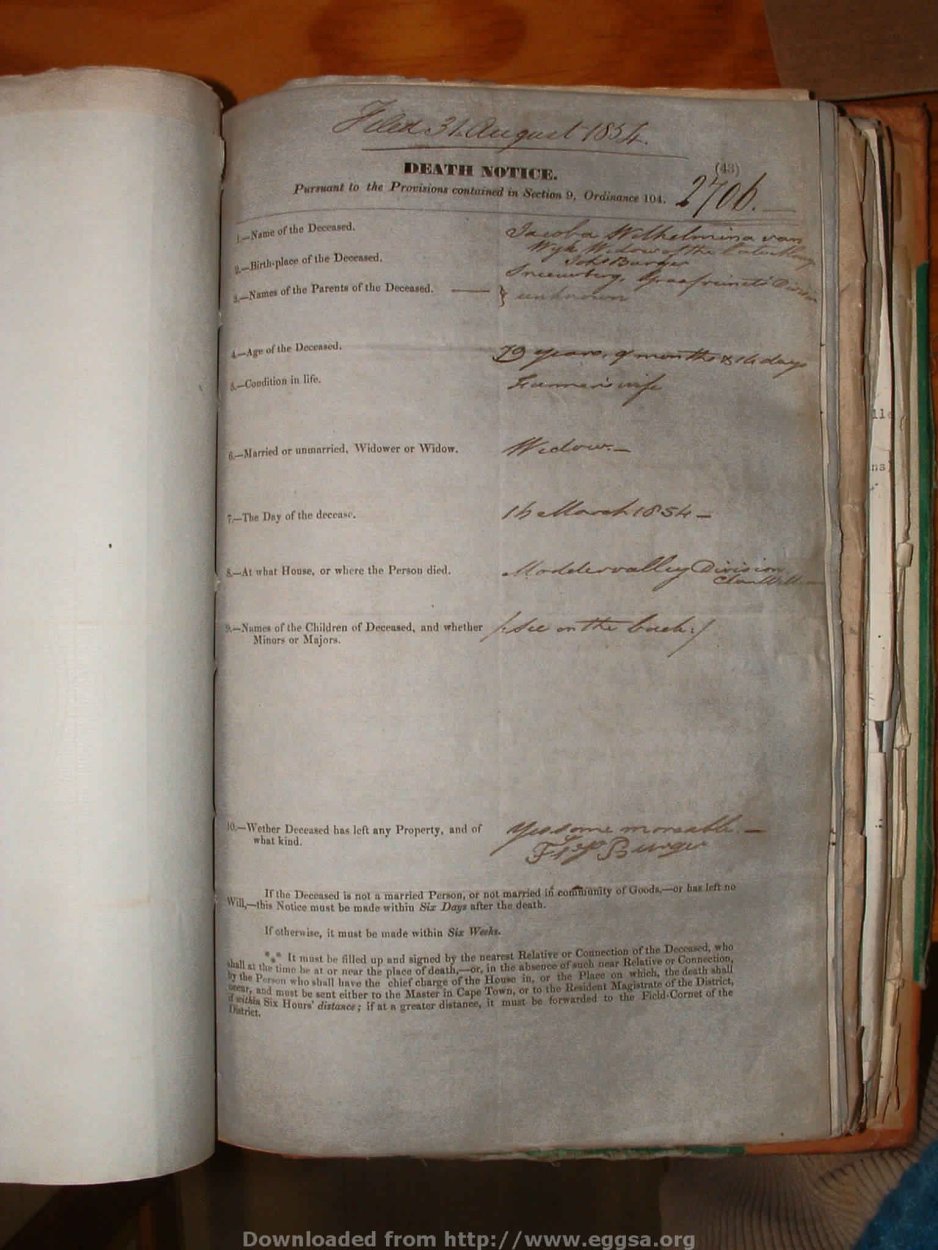 Filed 31 August 1854.
DEATH NOTICE. (43)
Pursuant to the Provisions contained in Section 9, Ordinance 104. 2706.
1.—Name of the Deceased. Jacoba Wilhelmina van
Wyk Widow of the late
Burger
2.—Birth-place of the Deceased. Sneeuwberg, Graafreinett Division
3.—Names of the Parents of the Deceased. — } unknown
4.—Age of the Deceased. 79 years, 9 months & 16 days
5.—Condition in life. Farmer's wife
6.—Married or unmarried, Widower or Widow. Widow.—
7.—The Day of the decease. 16 March 1854 —
8.—At what House, or where the Person died. Moddervalley Division
Clanwilliam
9.—Names of the Children of Deceased, and whether /:See on the back:/
Minors or Majors.
10.—Wether Deceased has left any Property, and of Yes some moveable —
what kind. Burger
If the Deceased is not a married Person, or not married in community of Goods,—or has left no
Will,—this Notice must be made within Six Days after the death.
If otherwise, it must be made within Six Weeks.
*** It must be filled up and signed by the nearest Relative or Connection of the Deceased, who
shall at the time be at or near the place of death,—or, in the absence of such near Relative or Connection,
by the Person who shall have the chief charge of the House in, or the Place on which, the death shall
occur, and must be sent either to the Master in Cape Town, or to the Resident Magistrate of the District,
if within Six Hours' distance; if at a greater distance, it must be forwarded to the Field-Cornet of the
District.
Downloaded from http://www.eggsa.org